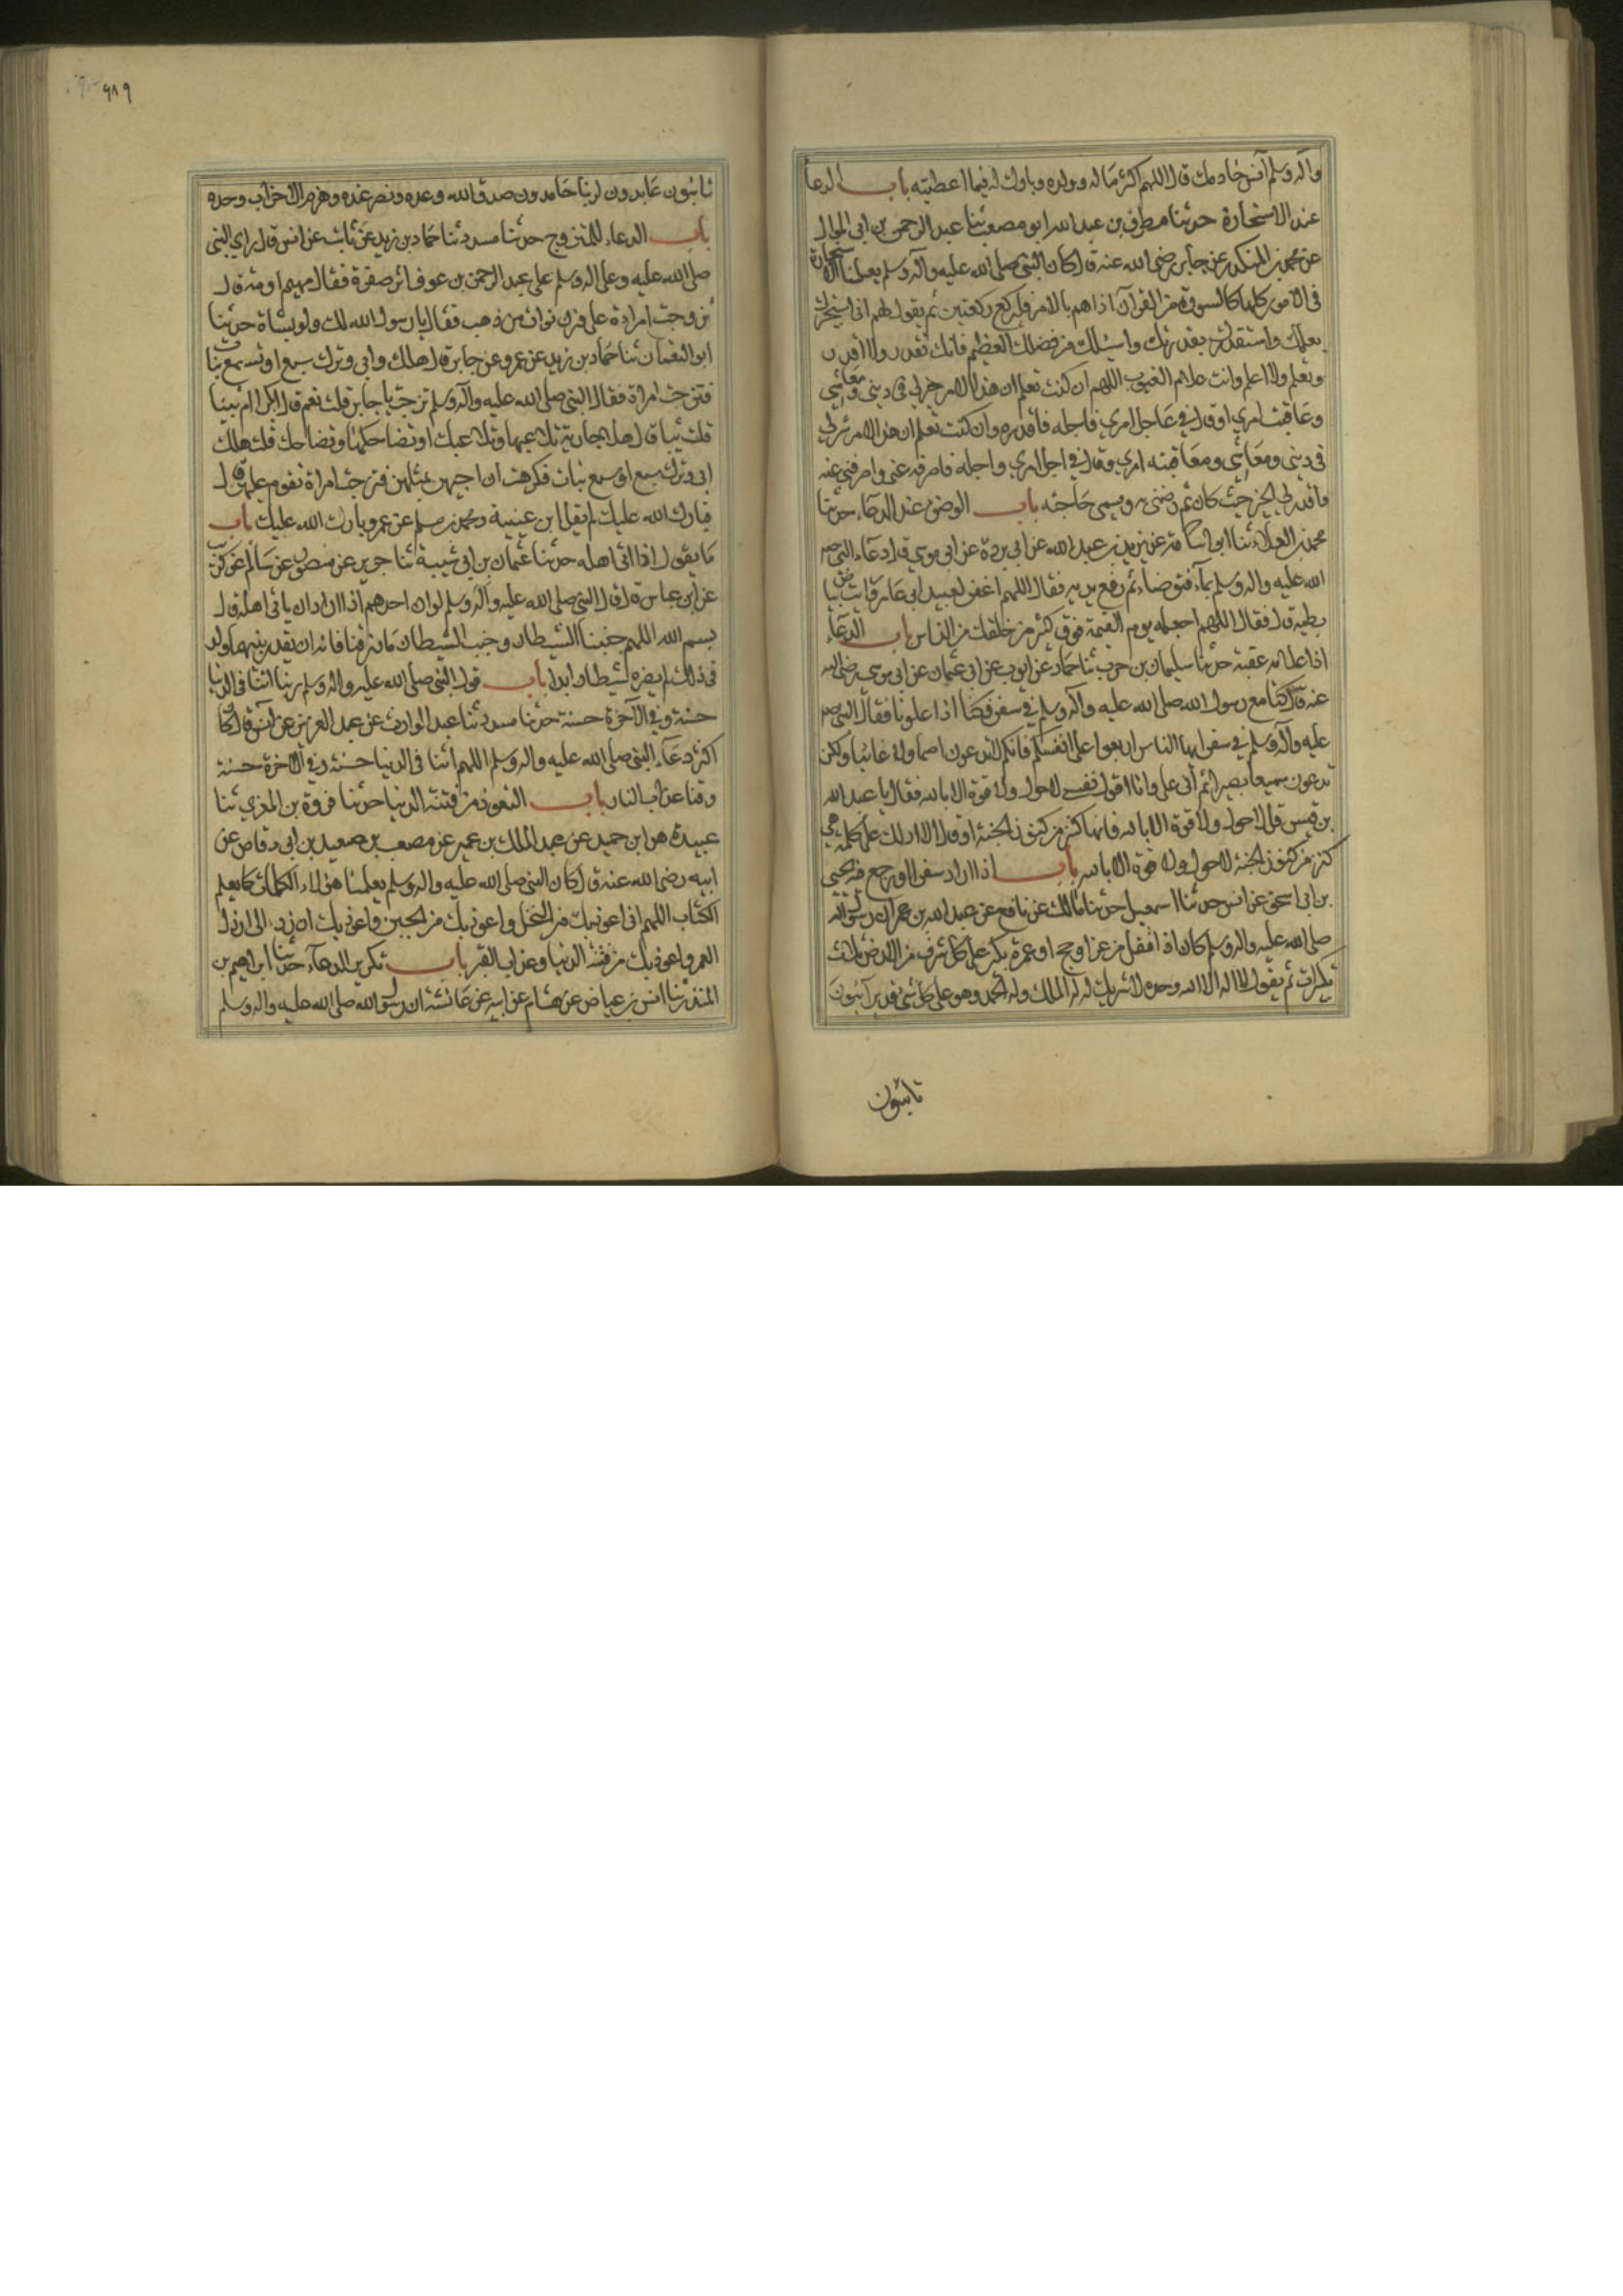 وآله وسلم أنس خادمك قال اللهم اكثر ماله وولده وبارك له فيما اعطيته باب الدعا
عند الاستخارة حدثنا مطرف بن عبد الله ابو مصعب ثنا عبد الرحمن بن ابي الموال
عن محمد بن المنكدر عن جابر رضى الله عنه قال كان النبي صلى الله عليه وآله وسلم يعلمنا الاستخارة
فى الامور كلها كالسورة من القرآن اذا هم بالامر فليركع ركعتين ثم يقول اللهم انى استخيرك
بعلمك واستقدرك بقدرتك واسئلك من فضلك العظيم فانك تقدر ولا اقدر
وتعلم ولا اعلم وانت علام الغيوب اللهم ان كنت تعلم ان هذا الامر خير لي فى دينى ومعاشي
وعاقبة امري او قال في عاجل امري فاجله فاقدره وان كنت تعلم ان هذا الامر شر لي
فى ديني ومعاشي ومعاقبته امري وقال في اجل امري واجله فاصرفه عنى واصرفني عنه
واقدر لي الخير حيث كان ثم رضنى به ويسمى حاجته باب الوضوء عند الدعاء حدثنا
محمد بن العلاء ثنا ابو اسامة عن بريد بن عبد الله عن ابي بردة عن ابي موسي قال دعاء النبي صلى
الله عليه وآله وسلم بماء فتوضاء ثم رفع يديه فقال اللهم اغفر لعبيد ابي عامر ورايت بياض
بطيه قال فقال اللهم اجعله يوم القيمة فوق كثير من خلقك من الناس باب الدعاء
اذا علا عقبة حدثنا سليمان بن حرب ثنا حماد عن ايوب عن ابي عثمان عن ابي موسي رضى الله
عنه قال كنا مع رسول الله صلى الله عليه وآله وسلم في سفر فكنا اذا علونا فقال النبي صلى
عليه وآله وسلم في سفر ايها الناس اربعوا على انفسكم فانكم لا تدعون اصما ولا غائبا ولكن
تدعون سميعا بصيرا ثم أتى على وانا اقول في نفسي لا حول ولا قوة الا بالله فقال يا عبد الله
بن قيس قل لا حول ولا قوة الا بالله فانها كنز من كنوز الجنة او قال الا ادلك على كلمة هي
كنز من كنوز الجنة لا حول ولا قوة الا بالله باب اذا اراد سفرا او رجع فيه يحيى
بن ابي اسحق عن انس حدثنا اسمعيل حدثنا مالك عن نافع عن عبد الله بن عمر ان رسول الله
صلى الله عليه وآله وسلم كان اذا قفل من غزا وحج او عمرة يكبر على كل شرف من الارض ثلاث
تكبيرات ثم يقول لا اله الا الله وحده لا شريك له له الملك وله الحمد وهو على كل شئ قدير آئبون
تائبون
٩٨٩
تائبون عابدون لربنا حامدون صدق الله وعده ونصر عبده وهزم الاحزاب وحده
باب الدعاء للمتزوج حدثنا مسدد ثنا حماد بن زيد عن ثابت عن انس قال راي النبي
صلى الله عليه وعلى آله وسلم على عبد الرحمن بن عوف اثر صفرة فقال مهيم او مه قال
تزوجت امراة على وزن نواة من ذهب فقال بارك الله لك ولو بشاة حدثنا
ابو النعمان ثنا حماد بن زيد عن عمرو عن جابر قال هلك وابي وترك سبع او تسع بنات
فتزوجت امراة فقال النبي صلى الله عليه وآله وسلم تزوجت يا جابر قلت نعم قال بكرا ام ثيبا
قلت ثيبا قال هلا جارية تلاعبها وتلاعبك او تضاحكها وتضاحك قلت هلك
ابي وترك سبع او تسع بنات فكرهت ان اجيهن بمثلهن فتزوجت امراة تقوم عليهن قال
فبارك الله عليك لم يقل ابن عيينة ومحمد بن مسلم عن عمرو بارك الله عليك باب
ما يقول اذا اتى اهله حدثنا عثمان بن ابي شيبة ثنا جرير عن منصور عن سالم عن كريب
عن ابن عباس قال قال النبي صلى الله عليه وآله وسلم لو ان احدهم اذا اراد ان ياتي اهله قال
بسم الله اللهم جنبنا الشيطان وجنب الشيطان ما رزقتنا فانه ان يقدر بينهما ولد
فى ذلك لم يضره شيطان ابدا باب قول النبي صلى الله عليه وآله وسلم ربنا اتنا فى الدنيا
حسنة وفي الآخرة حسنة حدثنا مسدد ثنا عبد الوارث عن عبد العزيز عن انس قال كان
اكثر دعاء النبي صلى الله عليه وآله وسلم اللهم اتنا فى الدنيا حسنة وفي الآخرة حسنة
وقنا عذاب النار باب التعوذ من فتنة الدنيا حدثنا فروة بن المغري ثنا
عبيدة هو ابن حميد عن عبد الملك بن عمير عن مصعب بن سعيد بن ابي وقاص عن
ابيه رضى الله عنه قال كان النبي صلى الله عليه وآله وسلم يعلمنا هؤلاء الكلمات كما يعلم
الكتاب اللهم انى اعوذ بك من البخل واعوذ بك من الجبن واعوذ بك ان نرد الى ارذل
العمر واعوذ بك من فتنة الدنيا وعذاب القبر باب تكرير الدعاء حدثنا ابراهيم بن
المنذر ثنا انس بن عياض عن هشام عن ابيه عن عائشة ان رسول الله صلى الله عليه وآله وسلم